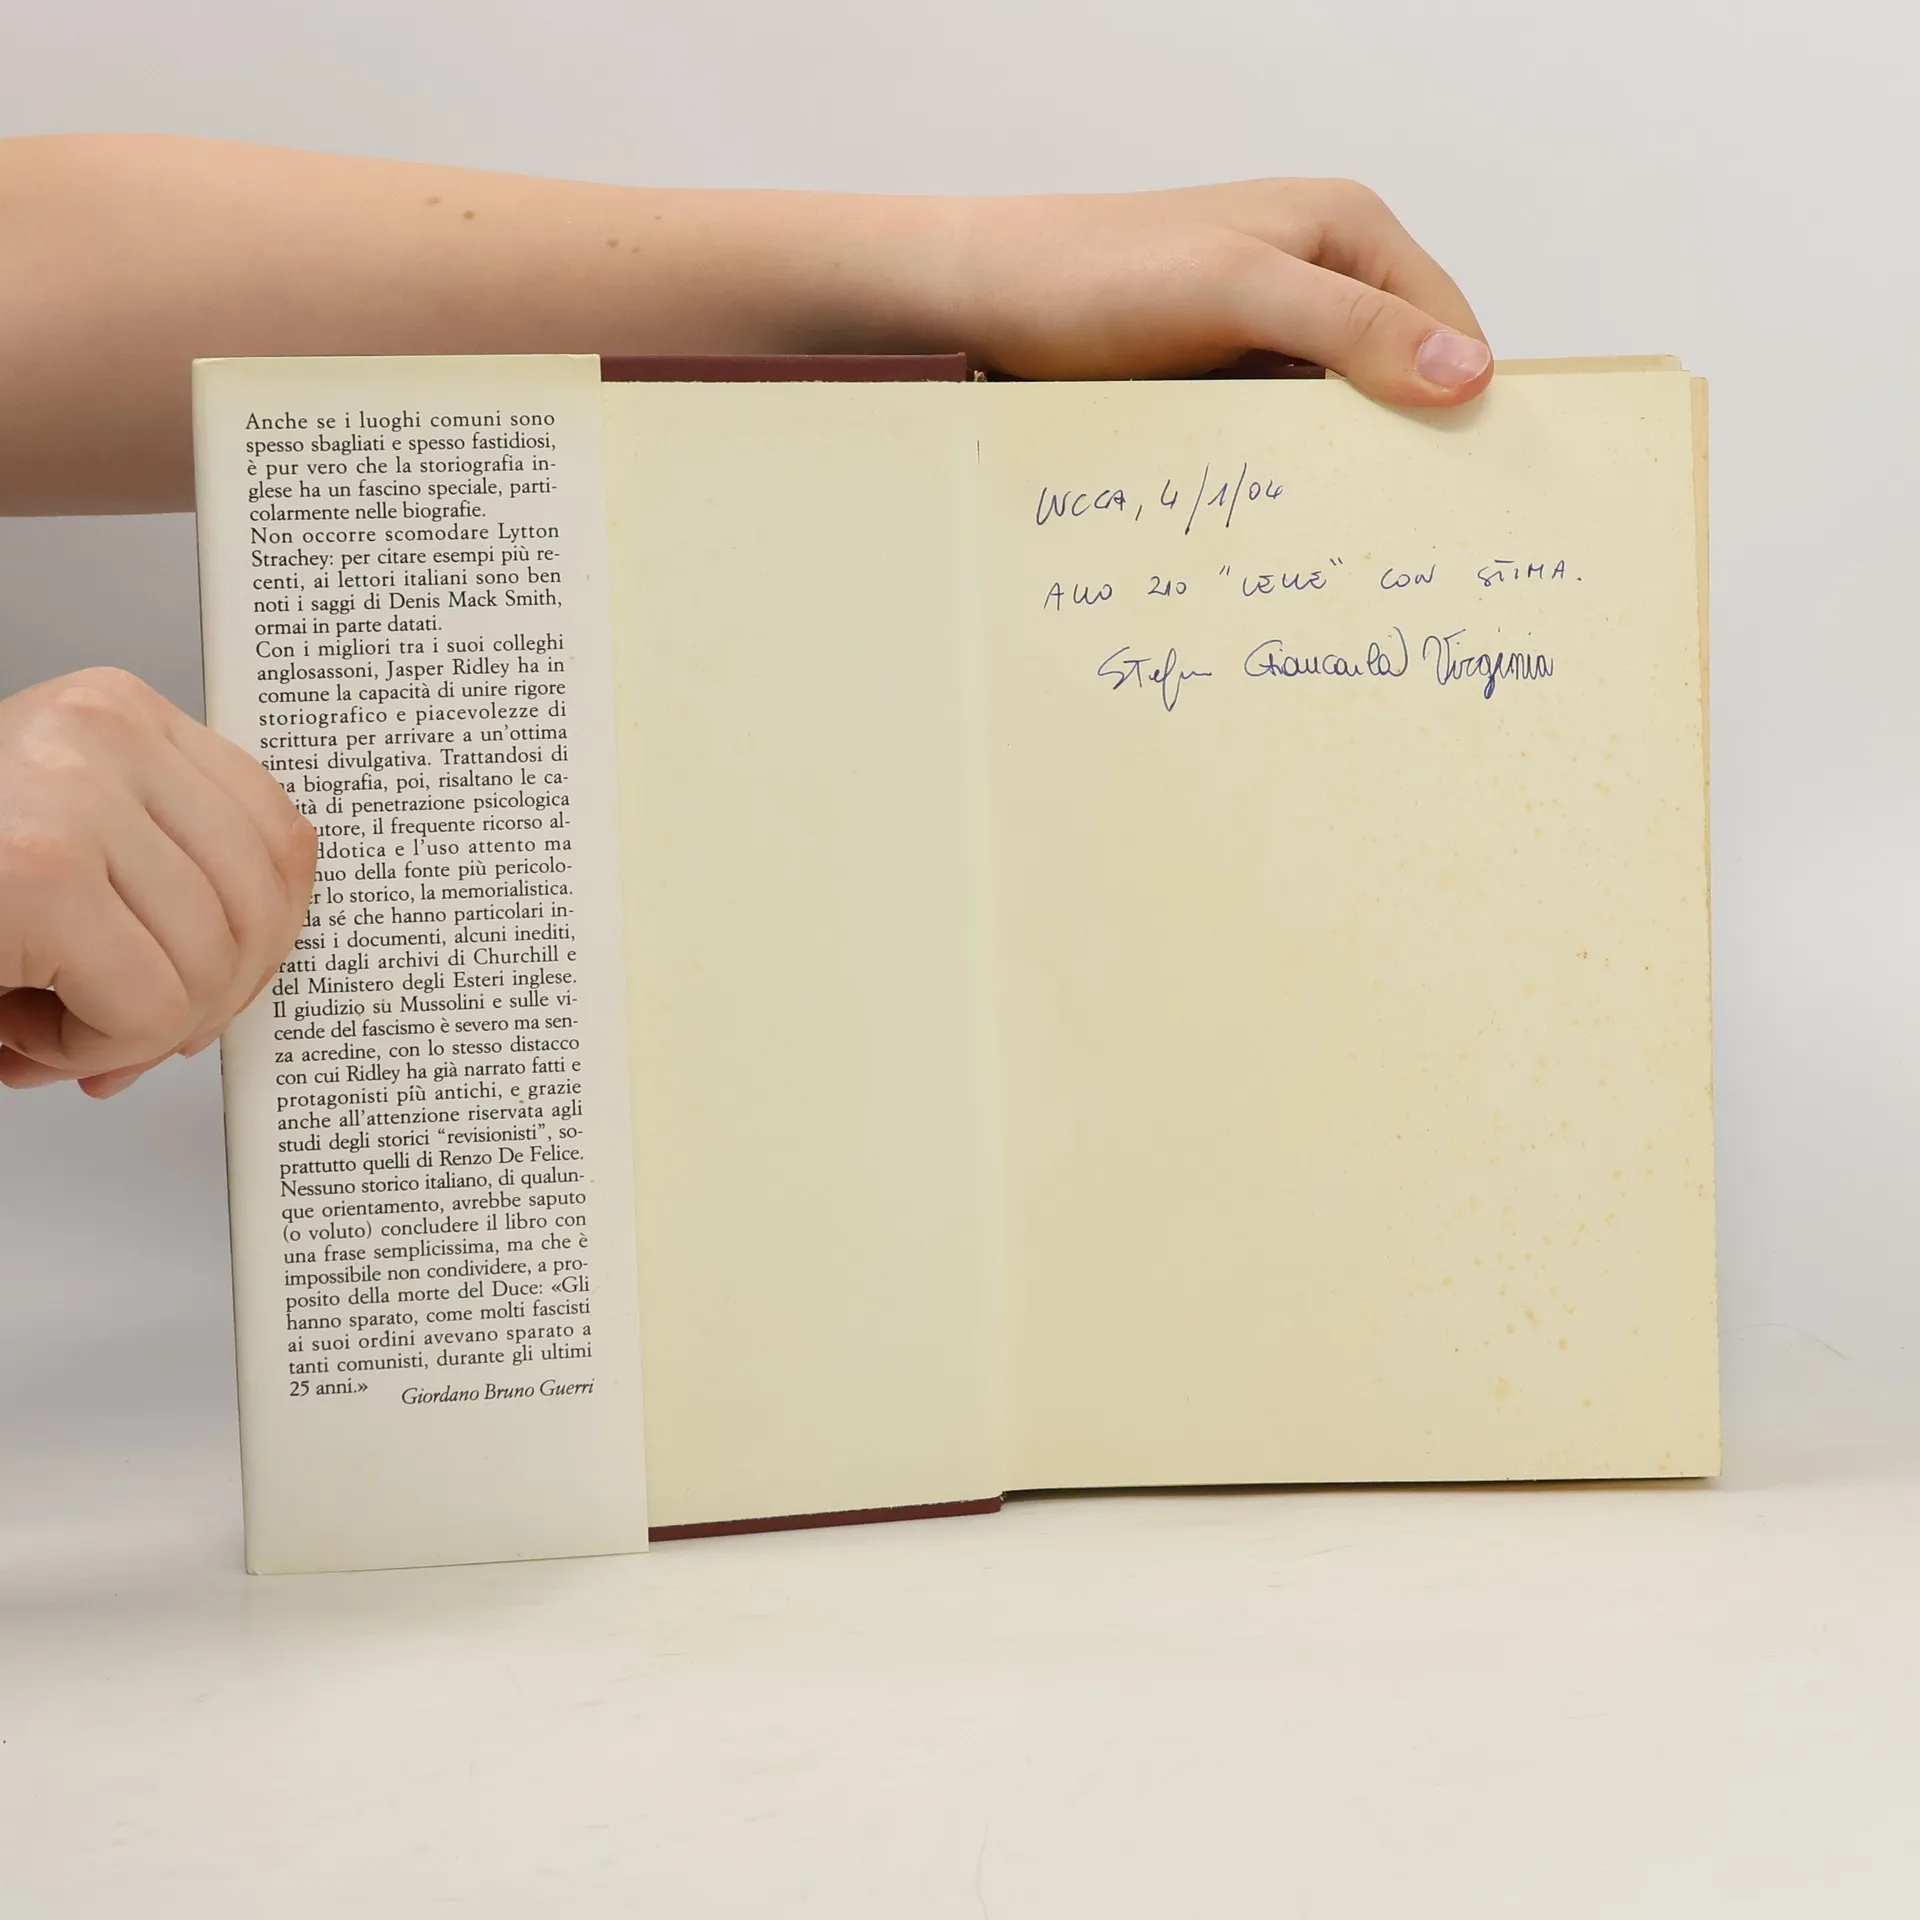 Anche se i luoghi comuni sono
spesso sbagliati e spesso fastidiosi,
è pur vero che la storiografia in-
glese ha un fascino speciale, parti-
colarmente nelle biografie.
Non occorre scomodare Lytton
Strachey: per citare esempi più re-
centi, ai lettori italiani sono ben
noti i saggi di Denis Mack Smith,
ormai in parte datati.
Con i migliori tra i suoi colleghi
anglosassoni, Jasper Ridley ha in
comune la capacità di unire rigore
storiografico e piacevolezze di
scrittura per arrivare a un'ottima
sintesi divulgativa. Trattandosi di
biografia, poi, risaltano le ca-
di penetrazione psicologica
il frequente ricorso al-
e l'uso attento ma
della fonte più pericolo-
lo storico, la memorialistica.
sé che hanno particolari in-
i documenti, alcuni inediti,
dagli archivi di Churchill e
del Ministero degli Esteri inglese.
Il giudizio su Mussolini e sulle vi-
cende del fascismo è severo ma sen-
za acredine, con lo stesso distacco
con cui Ridley ha già narrato fatti e
protagonisti più antichi, e grazie
anche all'attenzione riservata agli
studi degli storici “revisionisti”, so-
prattutto quelli di Renzo De Felice.
Nessuno storico italiano, di qualun-
que orientamento, avrebbe saputo
(o voluto) concludere il libro con
una frase semplicissima, ma che è
impossibile non condividere, a pro-
posito della morte del Duce: «Gli
hanno sparato, come molti fascisti
ai suoi ordini avevano sparato a
tanti comunisti, durante gli ultimi
25 anni.»
Giordano Bruno Guerri
LUCCA, 4/1/04
ALLO ZIO "LELLE" CON STIMA.
Giancarla Virginia